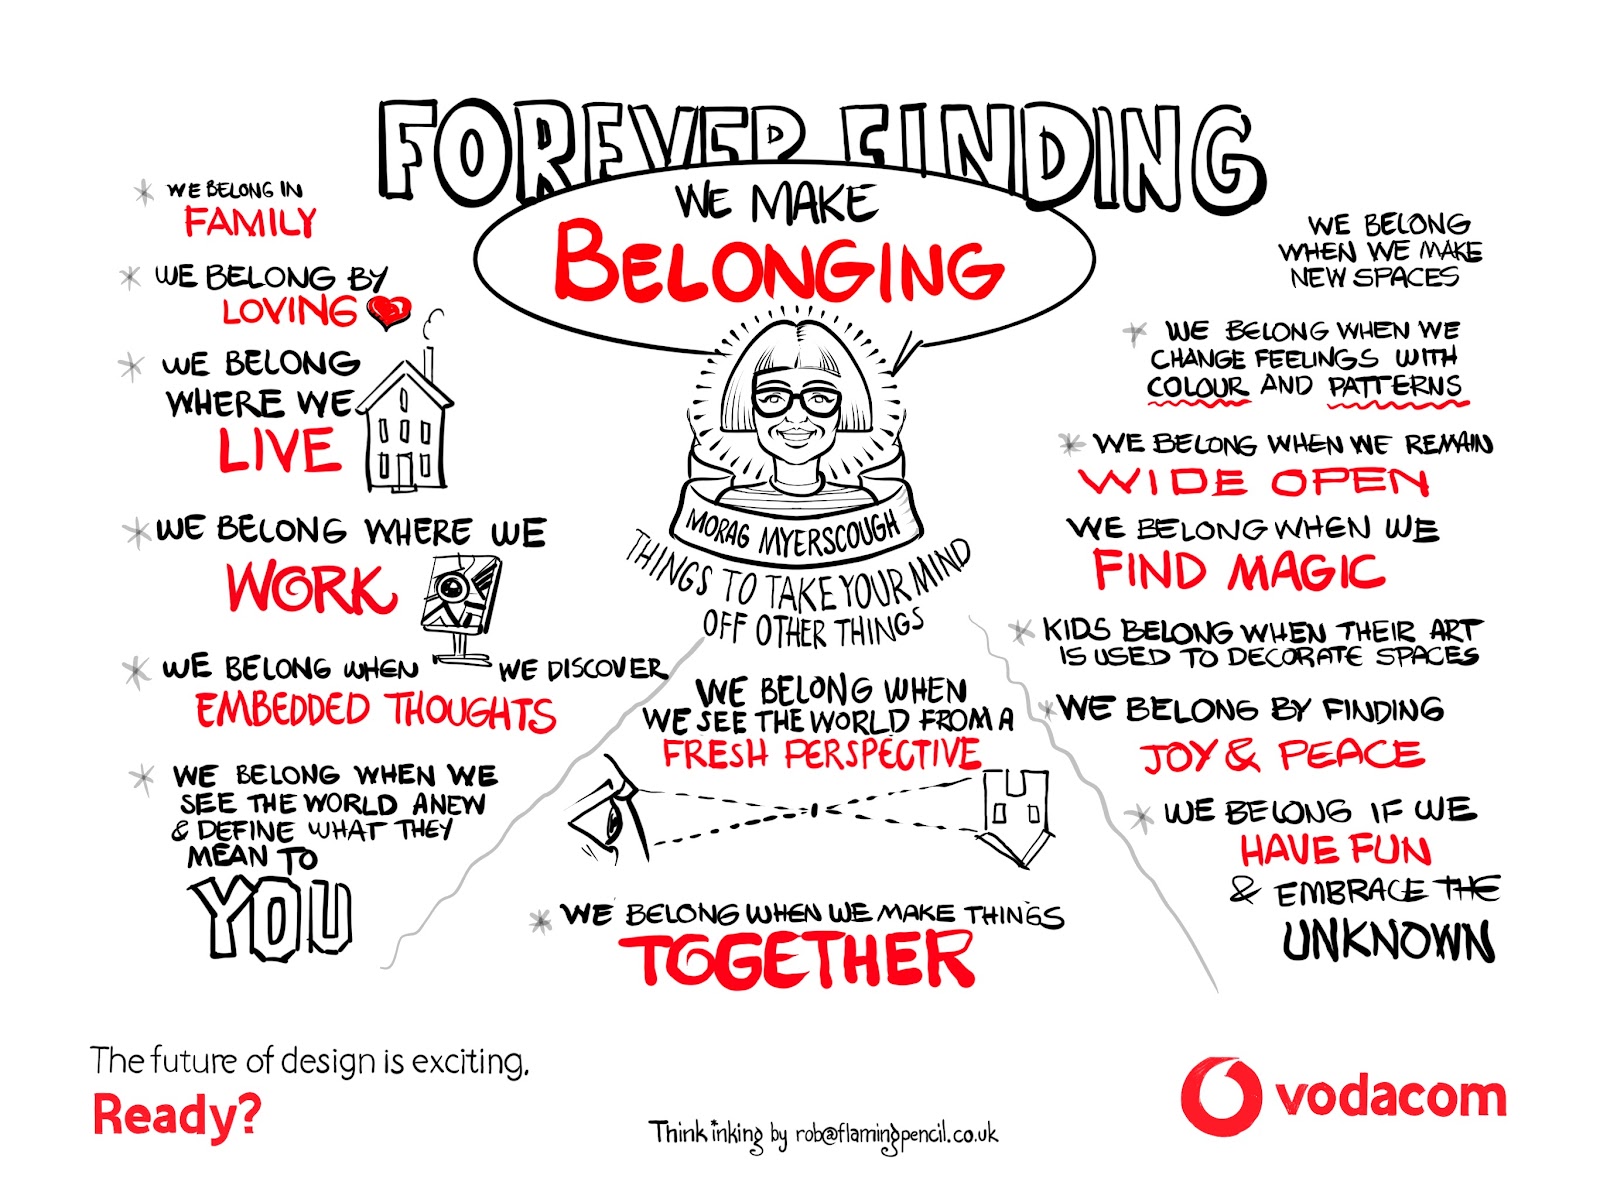 FOREVER FINDING
WE MAKE
BELONGING
MORAG MYERSCOUGH
THINGS TO TAKE YOUR MIND
OFF OTHER THINGS
* WE BELONG IN
FAMILY
* WE BELONG BY
LOVING
* WE BELONG
WHERE WE
LIVE
* WE BELONG WHERE WE
WORK
* WE BELONG WHEN WE DISCOVER
EMBEDDED THOUGHTS
* WE BELONG WHEN WE
SEE THE WORLD ANEW
& DEFINE WHAT THEY
MEAN TO
YOU
WE BELONG WHEN
WE SEE THE WORLD FROM A
FRESH PERSPECTIVE
* WE BELONG WHEN WE MAKE THINGS
TOGETHER
WE BELONG
WHEN WE MAKE
NEW SPACES
* WE BELONG WHEN WE
CHANGE FEELINGS WITH
COLOUR AND PATTERNS
* WE BELONG WHEN WE REMAIN
WIDE OPEN
WE BELONG WHEN WE
FIND MAGIC
* KIDS BELONG WHEN THEIR ART
IS USED TO DECORATE SPACES
* WE BELONG BY FINDING
JOY & PEACE
* WE BELONG IF WE
HAVE FUN
& EMBRACE THE
UNKNOWN
The future of design is exciting.
Ready?
Think*inking by rob@flamingpencil.co.uk
vodacom